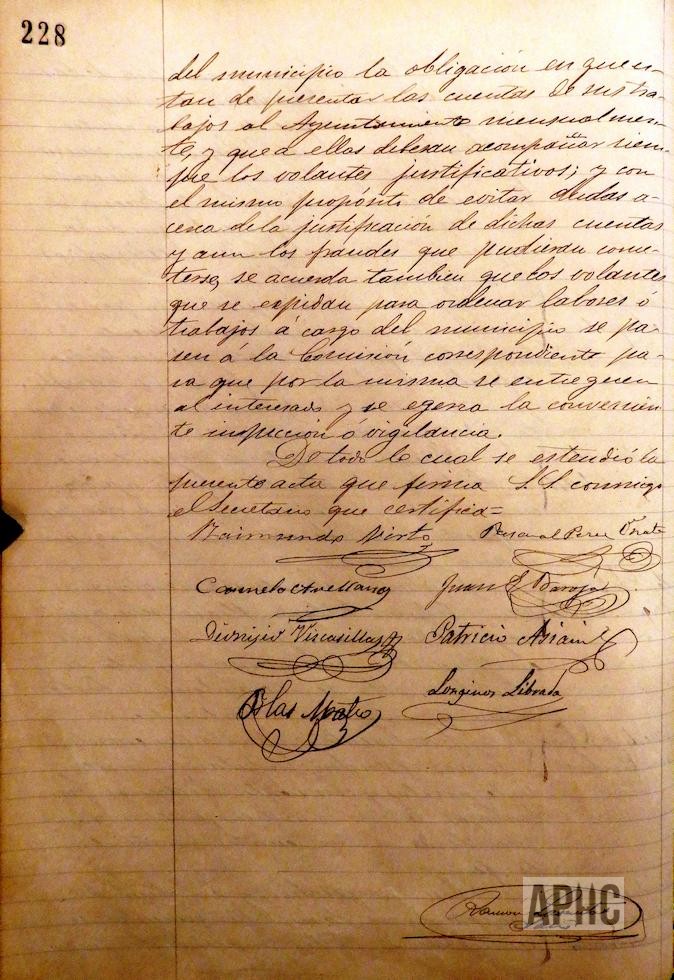 228
del municipio la obligación en que es-
tan de presentar las cuentas de sus tra-
bajos al Ayuntamiento mensualmen-
te, y que a ellas deberan acompañar siem-
pre los volantes justificativos; y con
el mismo propósito de evitar dudas a-
cerca de la justificación de dichas cuentas
y aun los fraudes que pudieran come-
terse, se acuerda tambien que los volantes
que se expidan para ordenar labores ó
trabajos á cargo del municipio se pa-
sen á la Comisión correspondiente pa-
ra que por la misma se entreguen
al interesado y se egerza la convenien-
te inspección ó vigilancia.
De todo lo cual se estendió la
presente acta que firma S.S. conmigo
el Secretario que certifica=
Raimundo Virto Pascual Perez
Carmelo Arellano Juan Baroja
Dionisio Viscasillas Patricio Asiain
Longinos Librada
Blas Mateo
Ramon
APHC